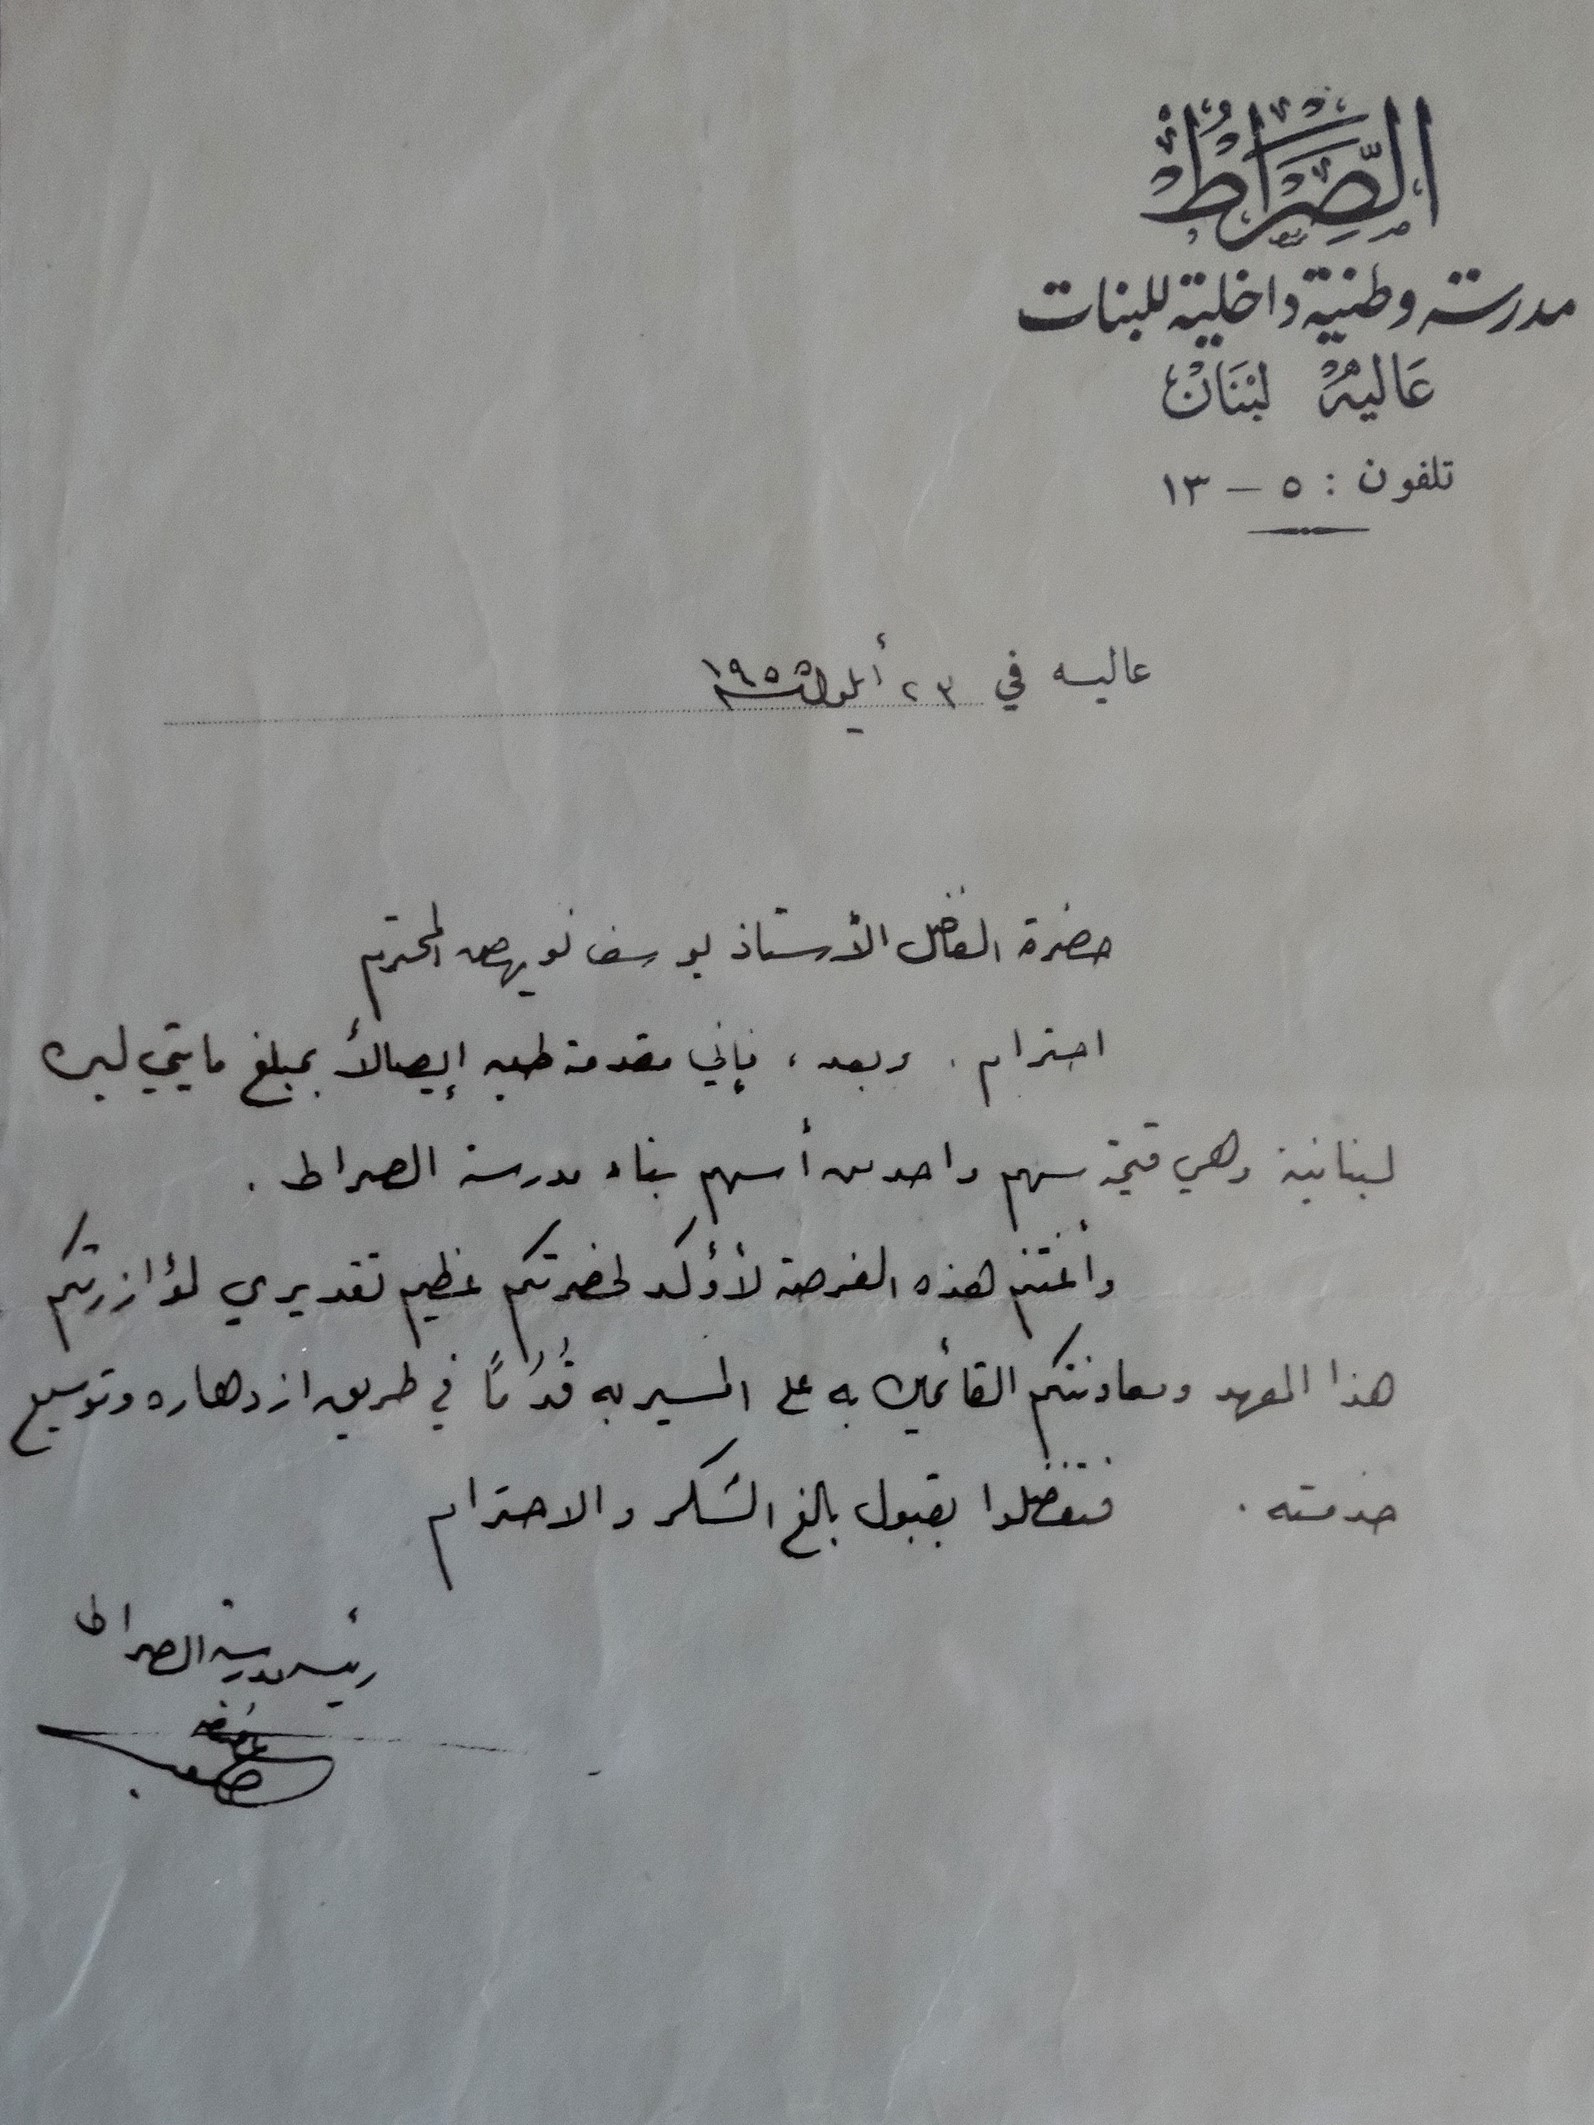 الصِّرَاطُ
مدرسة وطنية داخلية للبنات
عَاليهْ لبْنَانْ
تلفون : ٥ – ١٣
عاليه في ٢٣ أيلول سنة ١٩٥٥
حضرة الفاضل الأستاذ يوسف نويهض المحترم
احترام . وبعد ، فإني مقدمة طيه إيصالاً بمبلغ مايتي ليرة
لبنانية وهي قيمة سهم واحد من أسهم بناء مدرسة الصراط .
وأغتنم هذه الفرصة لأؤكد لحضرتكم عظيم تقديري لمؤازرتكم
هذا المعهد ومعاونتكم القائمين به على السير به قُدُمًا في طريق ازدهاره وتوسيع
خدمته . فتفضلوا بقبول بالغ الشكر والاحترام
رئيسة مدرسة الصراط
عفيفة
صعب